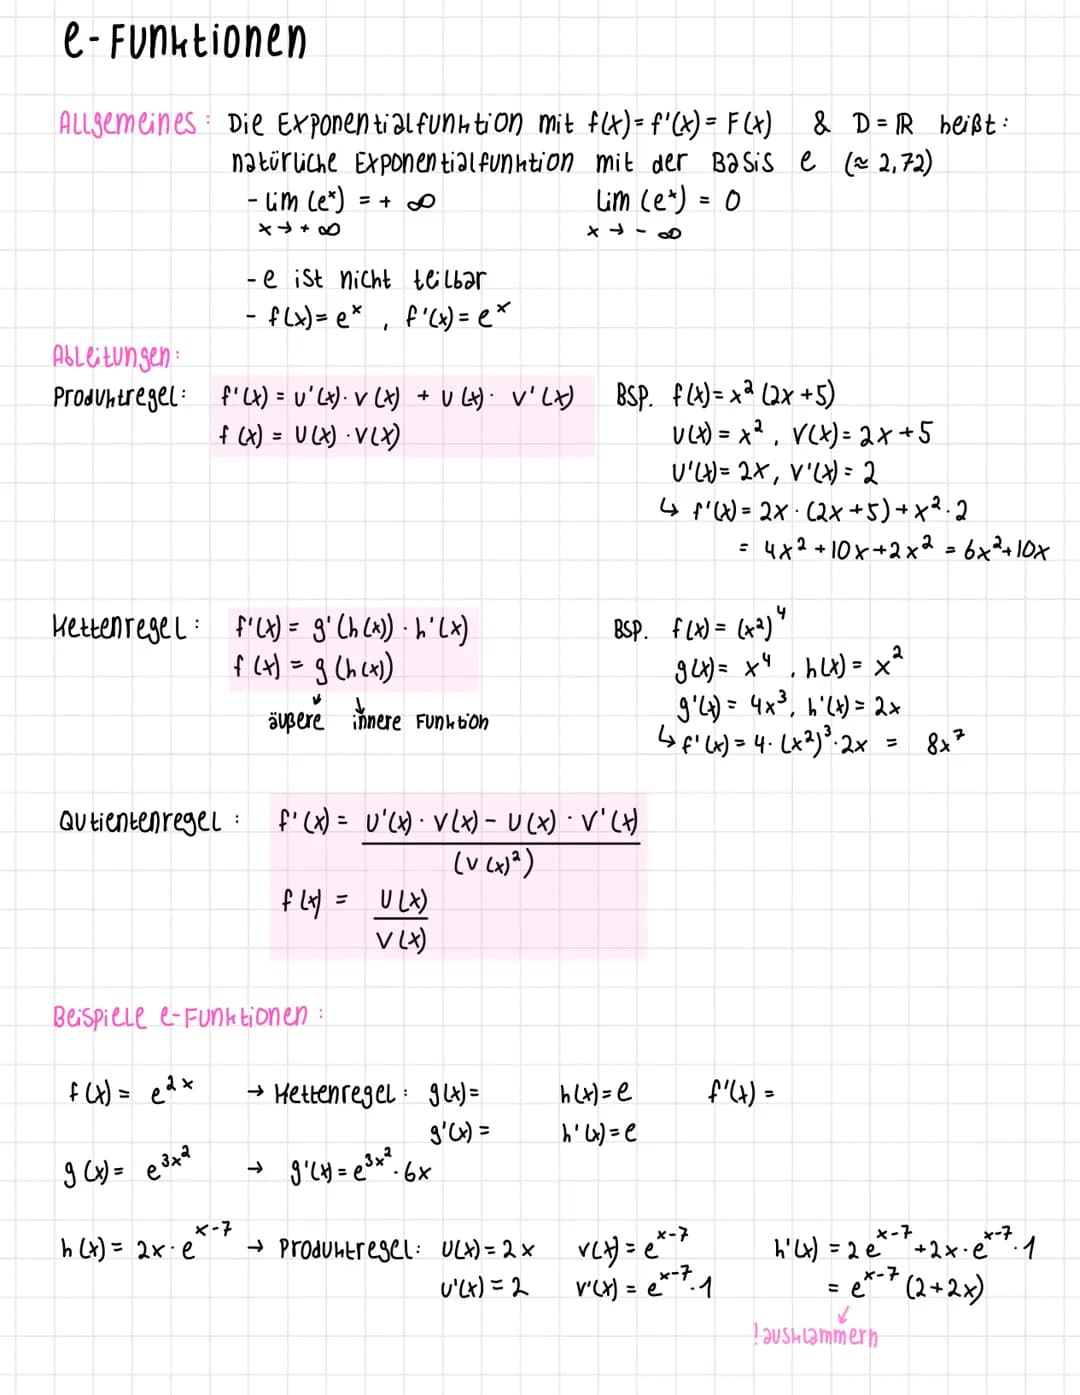 e-Funktionen
Allgemeines: Die Exponentialfunktion mit f(x)= f'(x) = F(x) & D = ℝ heißt:
natürliche Exponentialfunktion mit der Basis e (≈ 2,72)
- lim (eˣ) = + ∞ lim (eˣ) = 0
x → + ∞ x → - ∞
- e ist nicht teilbar
- f(x) = eˣ , f'(x) = eˣ
Ableitungen:
Produktregel: f'(x) = u'(x) · v(x) + u(x) · v'(x) BSP. f(x) = x² (2x+5)
f(x) = u(x) · v(x) u(x) = x² , v(x) = 2x+5
u'(x) = 2x, v'(x) = 2
↳ f'(x) = 2x · (2x+5) + x² · 2
= 4x² + 10x + 2x² = 6x² + 10x
Kettenregel: f'(x) = g'(h(x)) · h'(x) BSP. f(x) = (x²)⁴
f(x) = g(h(x)) g(x) = x⁴ , h(x) = x²
g'(x) = 4x³, h'(x) = 2x
äußere innere Funktion
↳ f'(x) = 4 · (x²)³ · 2x = 8x⁷
Qutientenregel: f'(x) = u'(x) · v(x) - u(x) · v'(x)
(v(x)²)
f(x) = u(x)
v(x)
Beispiele e-Funktionen:
f(x) = e²ˣ → Kettenregel: g(x) = h(x) = e f'(x) =
g'(x) = h'(x) = e
g(x) = e^3x² → g'(x) = e^3x² · 6x
h(x) = 2x · e^x-7 → Produktregel: u(x) = 2x v(x) = e^x-7 h'(x) = 2e^x-7 + 2x · e^x-7 · 1
u'(x) = 2 v'(x) = e^x-7 · 1 = e^x-7 (2+2x)
! ausklammern